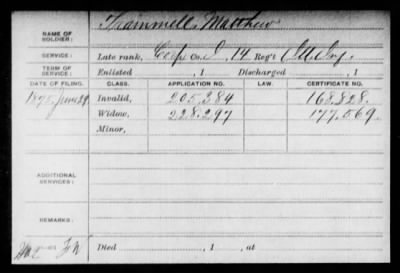 NAME OF SOLDIER: Trammell, Matthew
SERVICE: Late rank, Corp Co. I, 14 Reg't Ill. Inf.
TERM OF SERVICE: Enlisted , 1 Discharged , 1
DATE OF FILING. CLASS. APPLICATION NO. LAW. CERTIFICATE NO.
1875 June 29 Invalid, 205,384 168,828.
Widow, 228,297 177,569.
Minor,
ADDITIONAL SERVICES:
REMARKS:
Died , 1 , at